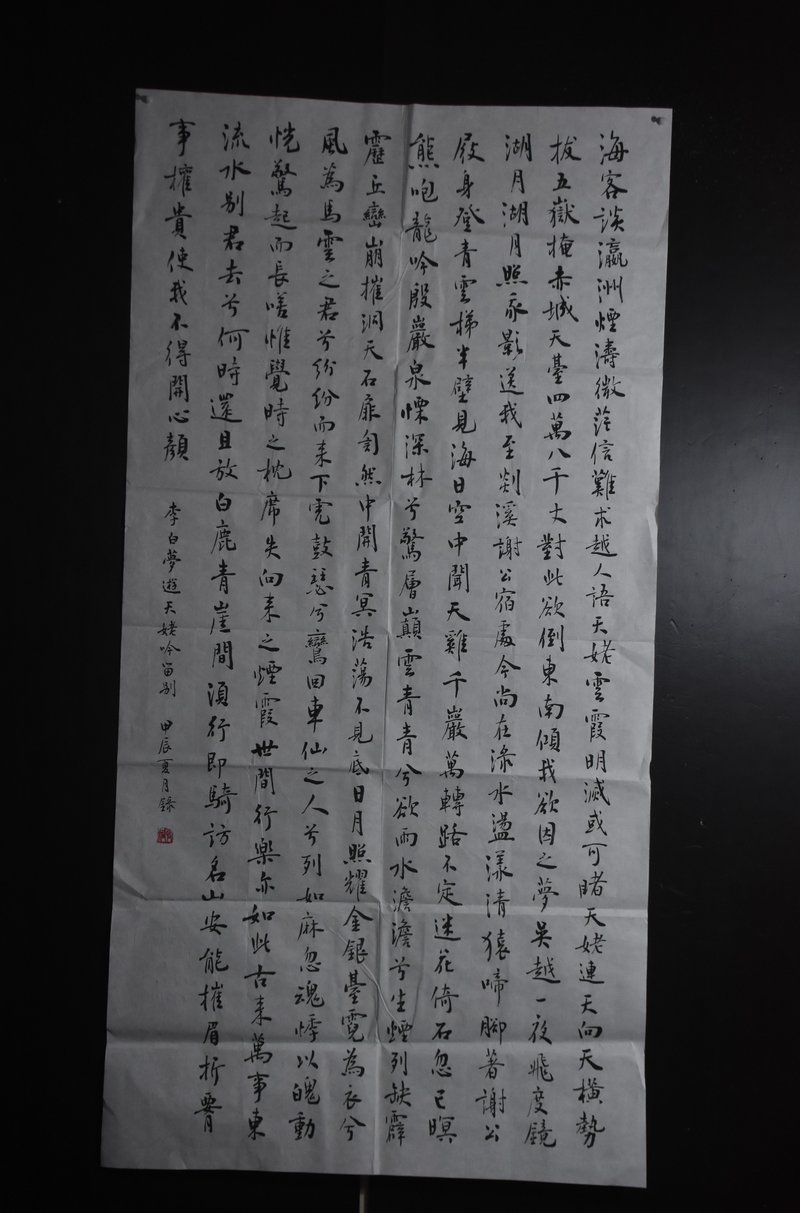 海客談瀛洲煙濤微茫信難求越人語天姥雲霞明滅或可睹天姥連天向天橫勢
拔五嶽掩赤城天臺四萬八千丈對此欲倒東南傾我欲因之夢吳越一夜飛度鏡
湖月湖月照我影送我至剡溪謝公宿處今尚在淥水盪漾清猿啼腳著謝公
屐身登青雲梯半壁見海日空中聞天雞千巖萬轉路不定迷花倚石忽已暝
熊咆龍吟殷巖泉慄深林兮驚層巔雲青青兮欲雨水澹澹兮生煙列缺霹
靂丘巒崩摧洞天石扉訇然中開青冥浩蕩不見底日月照耀金銀臺霓為衣兮
風為馬雲之君兮紛紛而來下虎鼓瑟兮鸞回車仙之人兮列如麻忽魂悸以魄動
恍驚起而長嗟惟覺時之枕席失向來之煙霞世間行樂亦如此古來萬事東
流水別君去兮何時還且放白鹿青崖間須行即騎訪名山安能摧眉折腰
事權貴使我不得開心顏
李白夢遊天姥吟留別 甲辰夏月錄